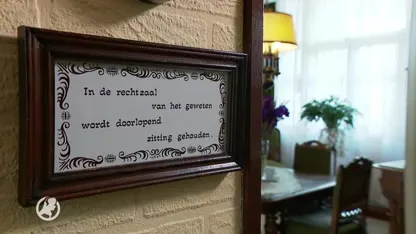 In de rechtzaal
van het geweten
wordt doorlopend
zitting gehouden.